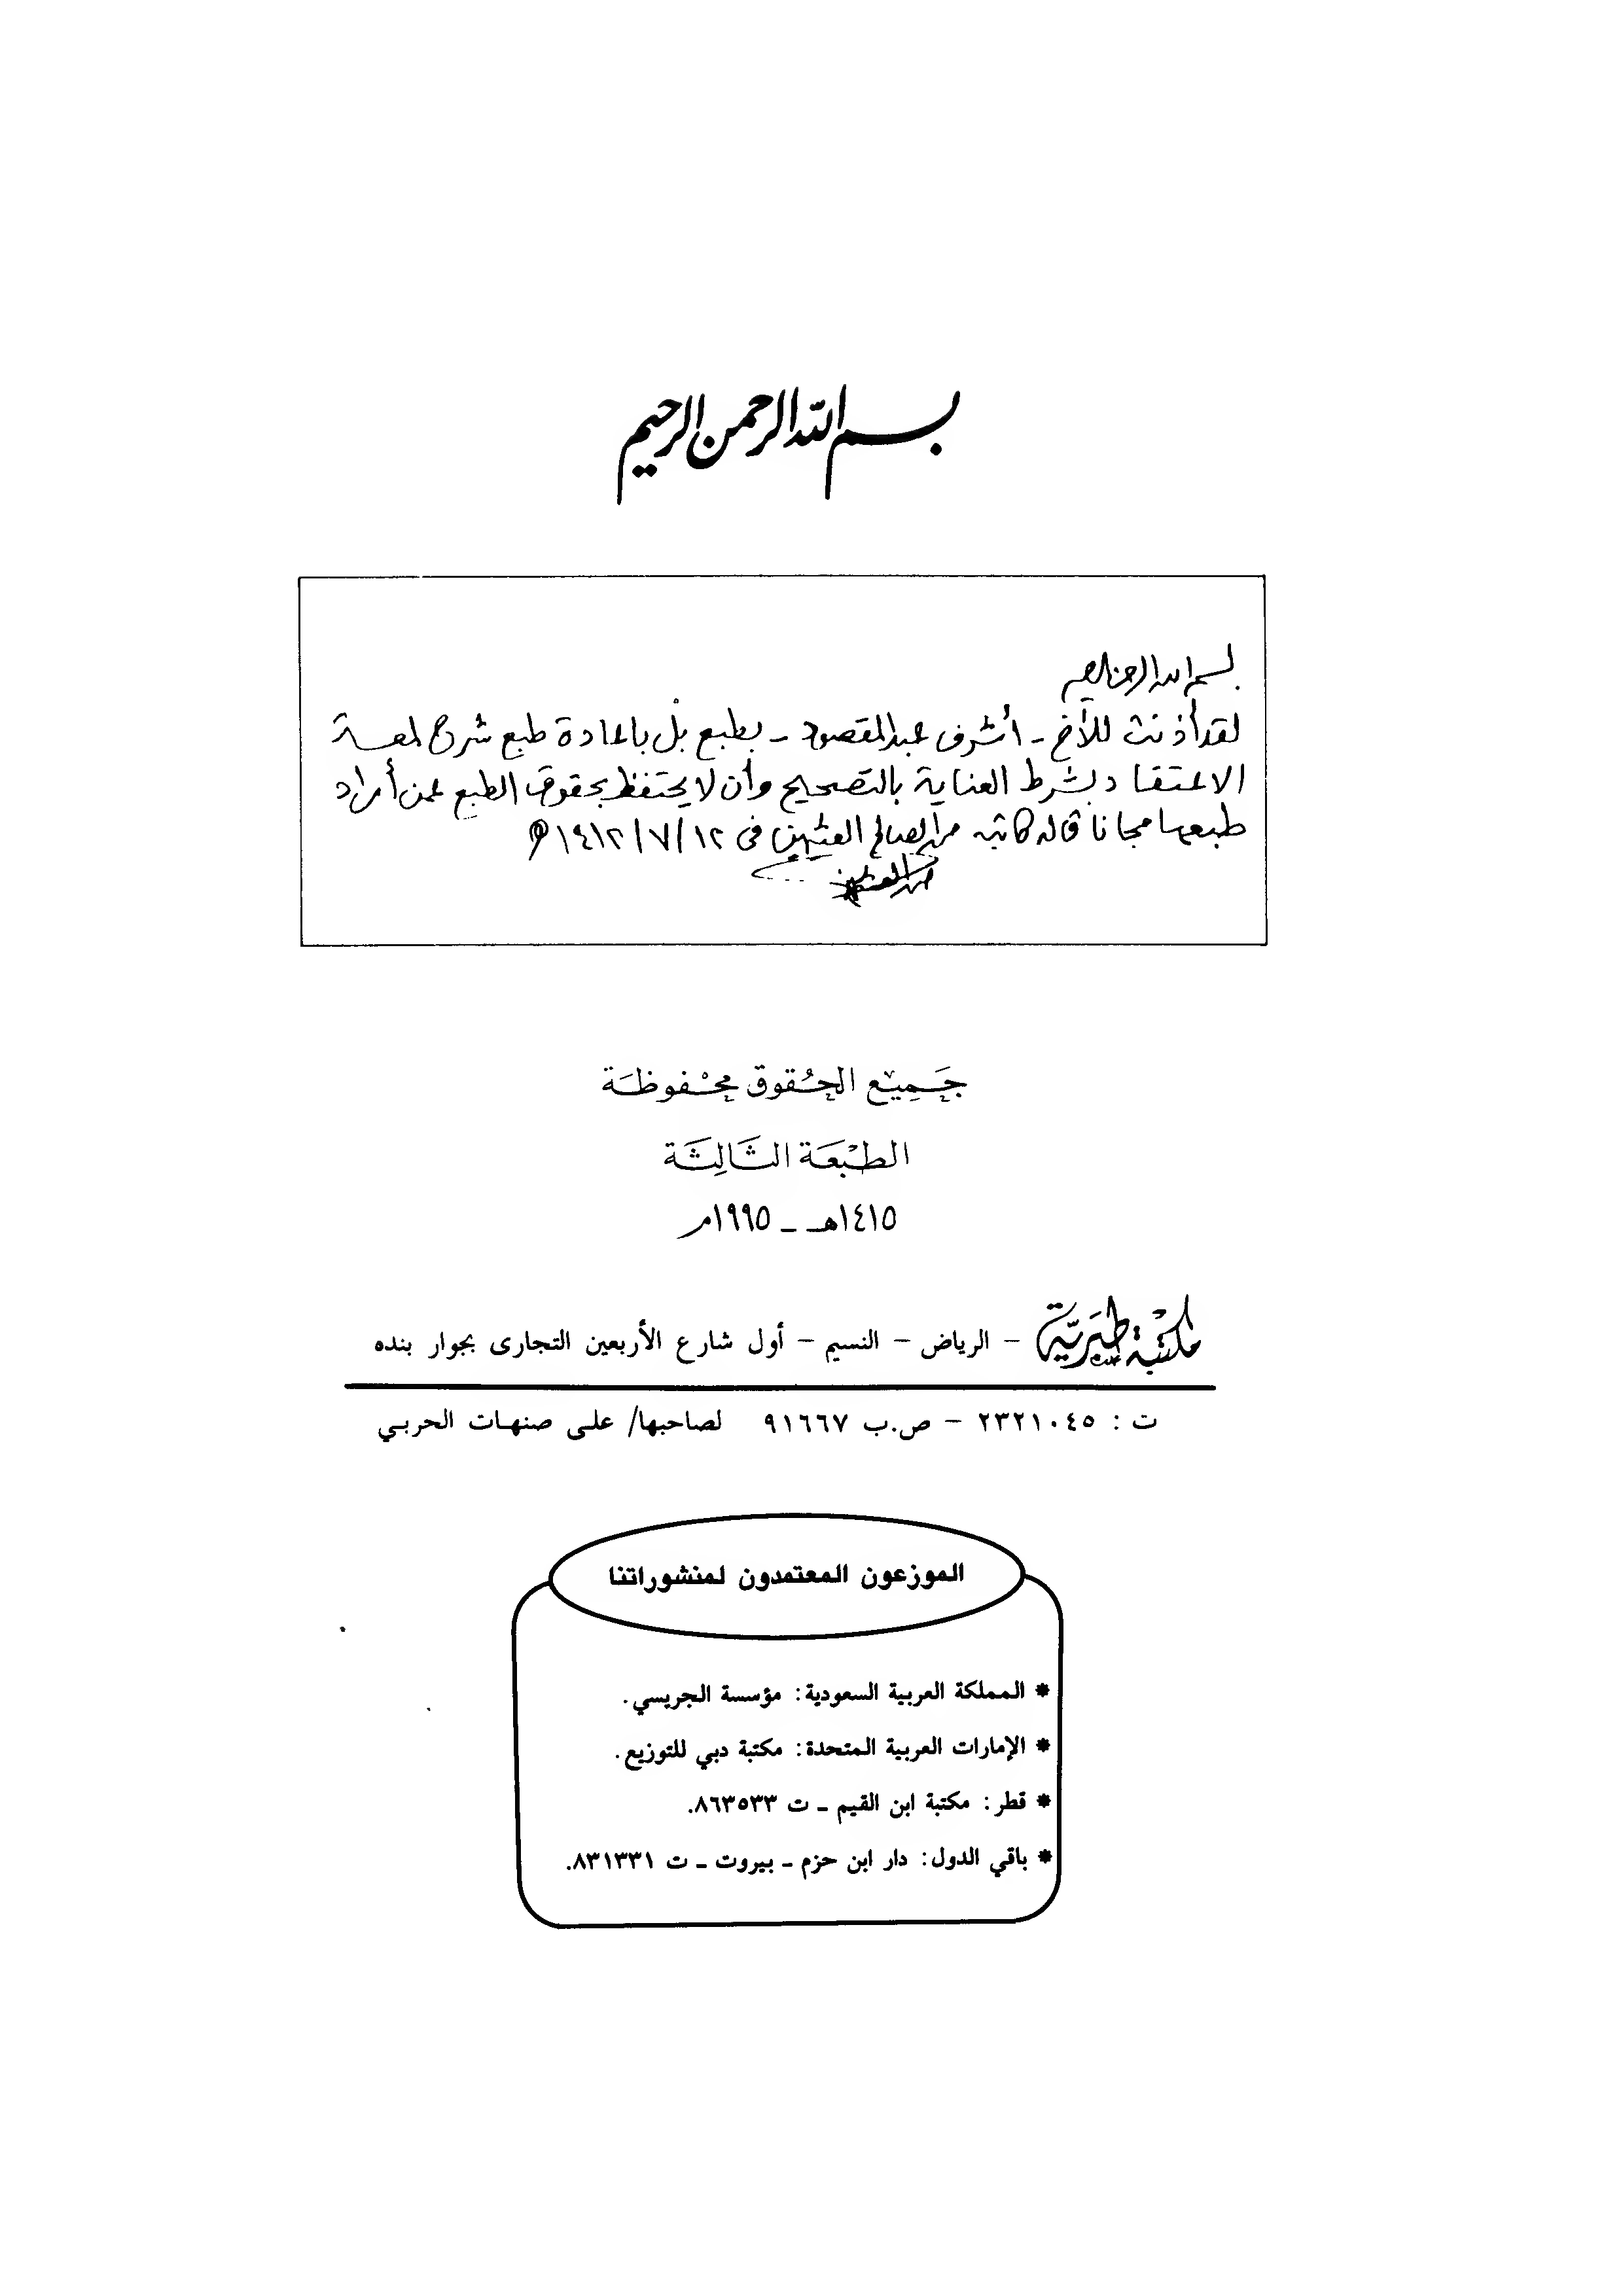 بسم الله الرحمن الرحيم
بسم الله الرحمن الرحيم
لقد أذنت للأخ - أشرف عبد المقصود - بطبع بل بإعادة طبع شرح لمعة
الاعتقاد بشرط العناية بالتصحيح وأن لا يحتفظ بحقوق الطبع عمن أراد
طبعها مجانا قاله كاتبه محمد الصالح العثيمين في ١٤١٢/٧/١٢هـ
محمد العثيمين
جَميْع الحُقوق مَحْفوظَة
الطبْعَة الثَالِثَة
١٤١٥هـ - ١٩٩٥م
مكتبة طبريّة - الرياض - النسيم - أول شارع الأربعين التجارى بجوار بنده
ت : ٢٣٢١٠٤٥ - ص.ب ٩١٦٦٧ لصاحبها/ على صنهات الحربي
الموزعون المعتمدون لمنشوراتنا
* المملكة العربية السعودية: مؤسسة الجريسي.
* الإمارات العربية المتحدة: مكتبة دبي للتوزيع.
* قطر: مكتبة ابن القيم - ت ٨٦٣٥٣٣.
* باقي الدول: دار ابن حزم - بيروت - ت ٨٣١٣٣١.